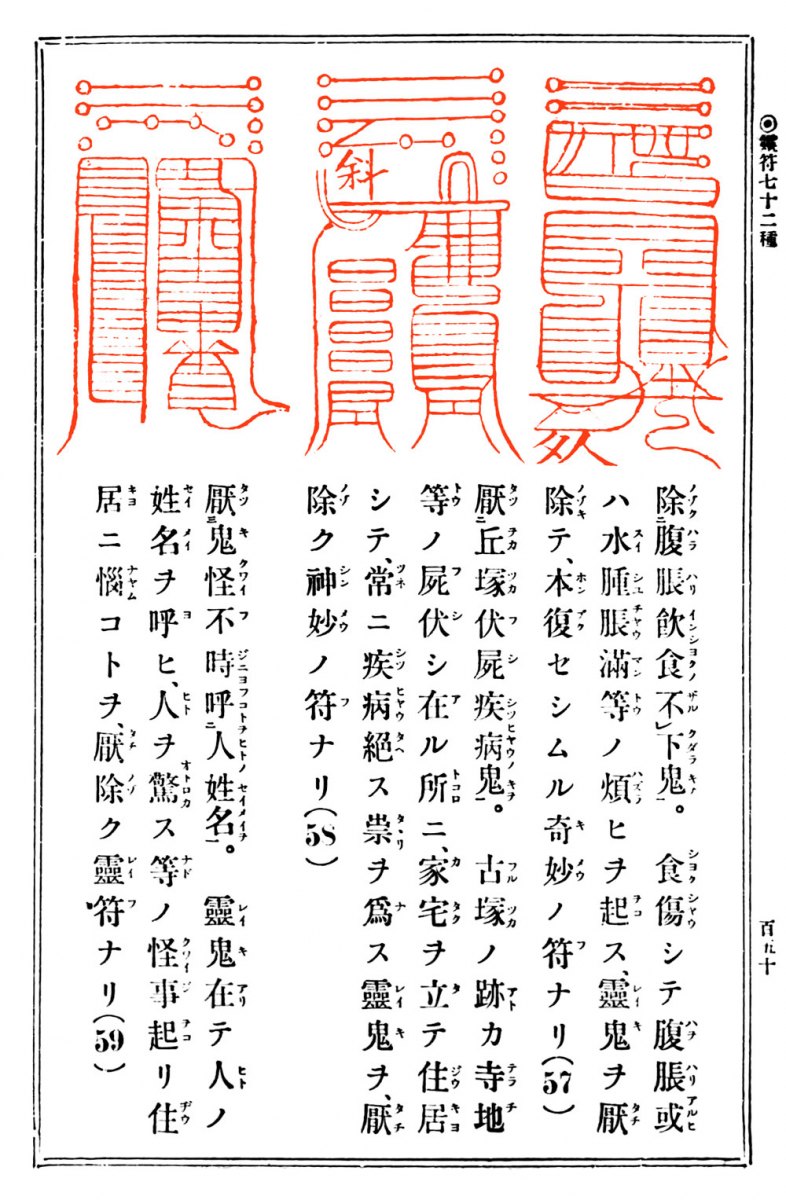 ◉靈符七十二種
百五十
斜
除二腹脹飮食不レ下鬼一。　食傷シテ腹脹或
ハ水腫脹滿等ノ煩ヒヲ起ス、靈鬼ヲ厭
除テ、本復セシムル奇妙ノ符ナリ(57)
厭二丘塚伏屍疾病鬼一。　古塚ノ跡カ寺地
等ノ屍伏シ在ル所ニ、家宅ヲ立テ住居
シテ、常ニ疾病絕ス祟ヲ爲ス靈鬼ヲ、厭
除ク神妙ノ符ナリ(58)
厭三鬼怪不時呼二人姓名一。　靈鬼在テ人ノ
姓名ヲ呼ヒ、人ヲ驚ス等ノ怪事起リ住
居ニ惱コトヲ、厭除ク靈符ナリ(59)